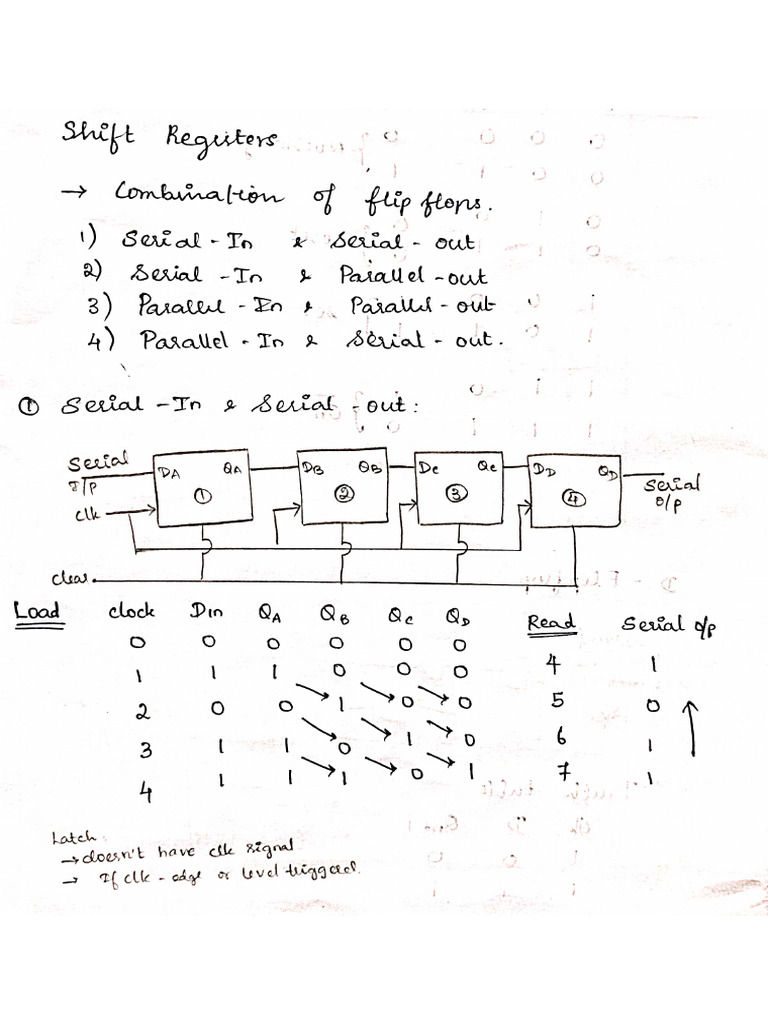 Shift Registers
→ Combination of flip flops.
1) Serial - In & Serial - out
2) Serial - In & Parallel - out
3) Parallel - In & Parallel - out
4) Parallel - In & Serial - out.
① Serial - In & Serial - out :
Serial I/P DA QA DB QB DC QC DD QD Serial O/P
① ② ③ ④
clk
clear
Load clock Din QA QB QC QD Read Serial O/P
0 0 0 0 0 0
1 1 1 0 0 0 4 1
2 0 0 1 0 0 5 0
3 1 1 0 1 0 6 1
4 1 1 1 0 1 7 1
Latch :
→ doesn't have clk signal
→ If clk - edge or level triggered.